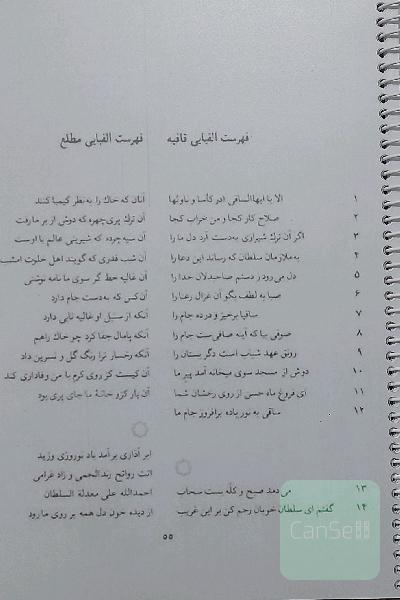 فهرست الفبایی قافیه    فهرست الفبایی مطلع
۱ الا یا ایها الساقی ادر کأسا و ناولها    آنان که خاک را به نظر کیمیا کنند
۲ صلاح کار کجا و من خراب کجا    آن ترک پری چهره که دوش از بر ما رفت
۳ اگر آن ترک شیرازی به‌دست آرد دل ما را    آن سیه چرده که شیرینی عالم با اوست
۴ به ملازمان سلطان که رساند این دعا را    آن شب قدری که گویند اهل خلوت امشب
۵ دل می‌رود ز دستم صاحبدلان خدا را    آن غالیه خط گر سوی ما نامه نوشتی
۶ صبا به لطف بگو آن غزال رعنا را    آن کس که به‌دست جام دارد
۷ ساقیا برخیز و درده جام را    آنکه از سنبل او غالیه تابی دارد
۸ صوفی بیا که آینه صافی‌ست جام را    آنکه پامال جفا کرد چو خاک راهم
۹ رونق عهد شباب است دگر بستان را    آنکه رخسار ترا رنگ گل و نسرین داد
۱۰ دوش از مسجد سوی میخانه آمد پیر ما    آن کیست کز روی کرم با من وفاداری کند
۱۱ ای فروغ ماه حسن از روی رخشان شما    آن یار کزو خانهٔ ما جای پری بود
۱۲ ساقی به نور باده برافروز جام ما
ابر آذاری برآمد باد نوروزی وزید
اتت روائح رند الحمی و زاد غرامی
۱۳ می‌دمد صبح و کلّه بست سحاب    احمدالله علی معدلة السلطان
۱۴ گفتم ای سلطان خوبان رحم کن بر این غریب    از دیده خون دل همه بر روی ما رود
۵۵
CanSell